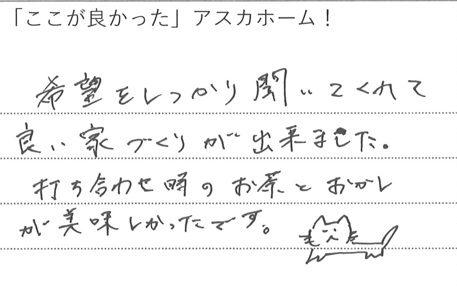 「ここが良かった」アスカホーム！
希望をしっかり聞いてくれて
良い家づくりが出来ました。
打ち合わせ時のお茶とおかし
が美味しかったです。